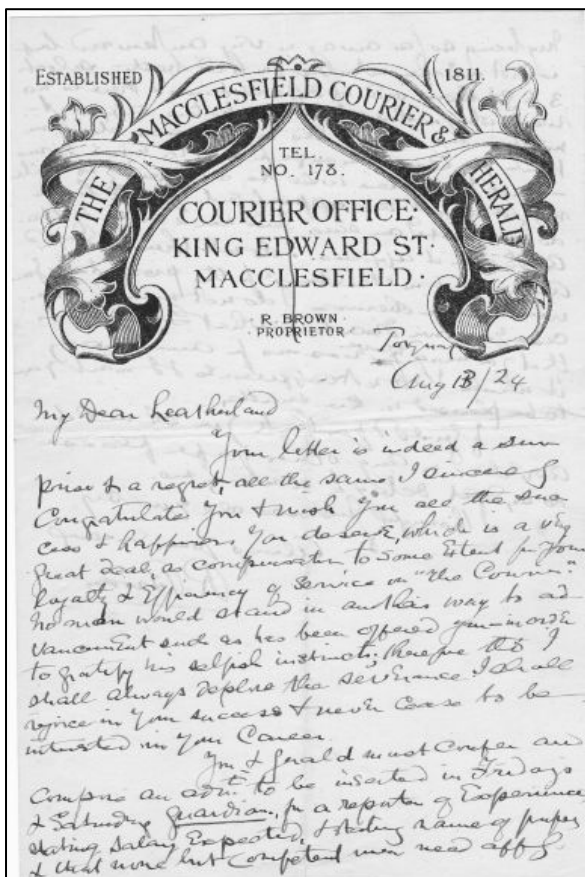 ESTABLISHED 1811.
THE MACCLESFIELD COURIER & HERALD
TEL.
NO. 178.
COURIER OFFICE·
KING EDWARD ST·
MACCLESFIELD·
R. BROWN
PROPRIETOR
Torquay
Aug 13/24
My Dear Leatherland
Your letter is indeed a sur
prise & a regret, all the same I sincerely
Congratulate you & wish you all the suc
cess & happiness you deserve, which is a very
great deal, as compensation to some Extent for your
loyalty & Efficiency of Service on "the Courier".
No man would stand in another's way to ad
vancement such as has been offered you in order
to gratify his selfish instincts, therefore tho' I
shall always deplore the severance I shall
rejoice in your success & never cease to be
interested in your Career.
You & Gerald must Confer and
Compose an advt. to be inserted in Fridays
& Saturdays Guardian, for a reporter of Experience
stating Salary Expected, & stating name of paper
& that none but Competent men need apply